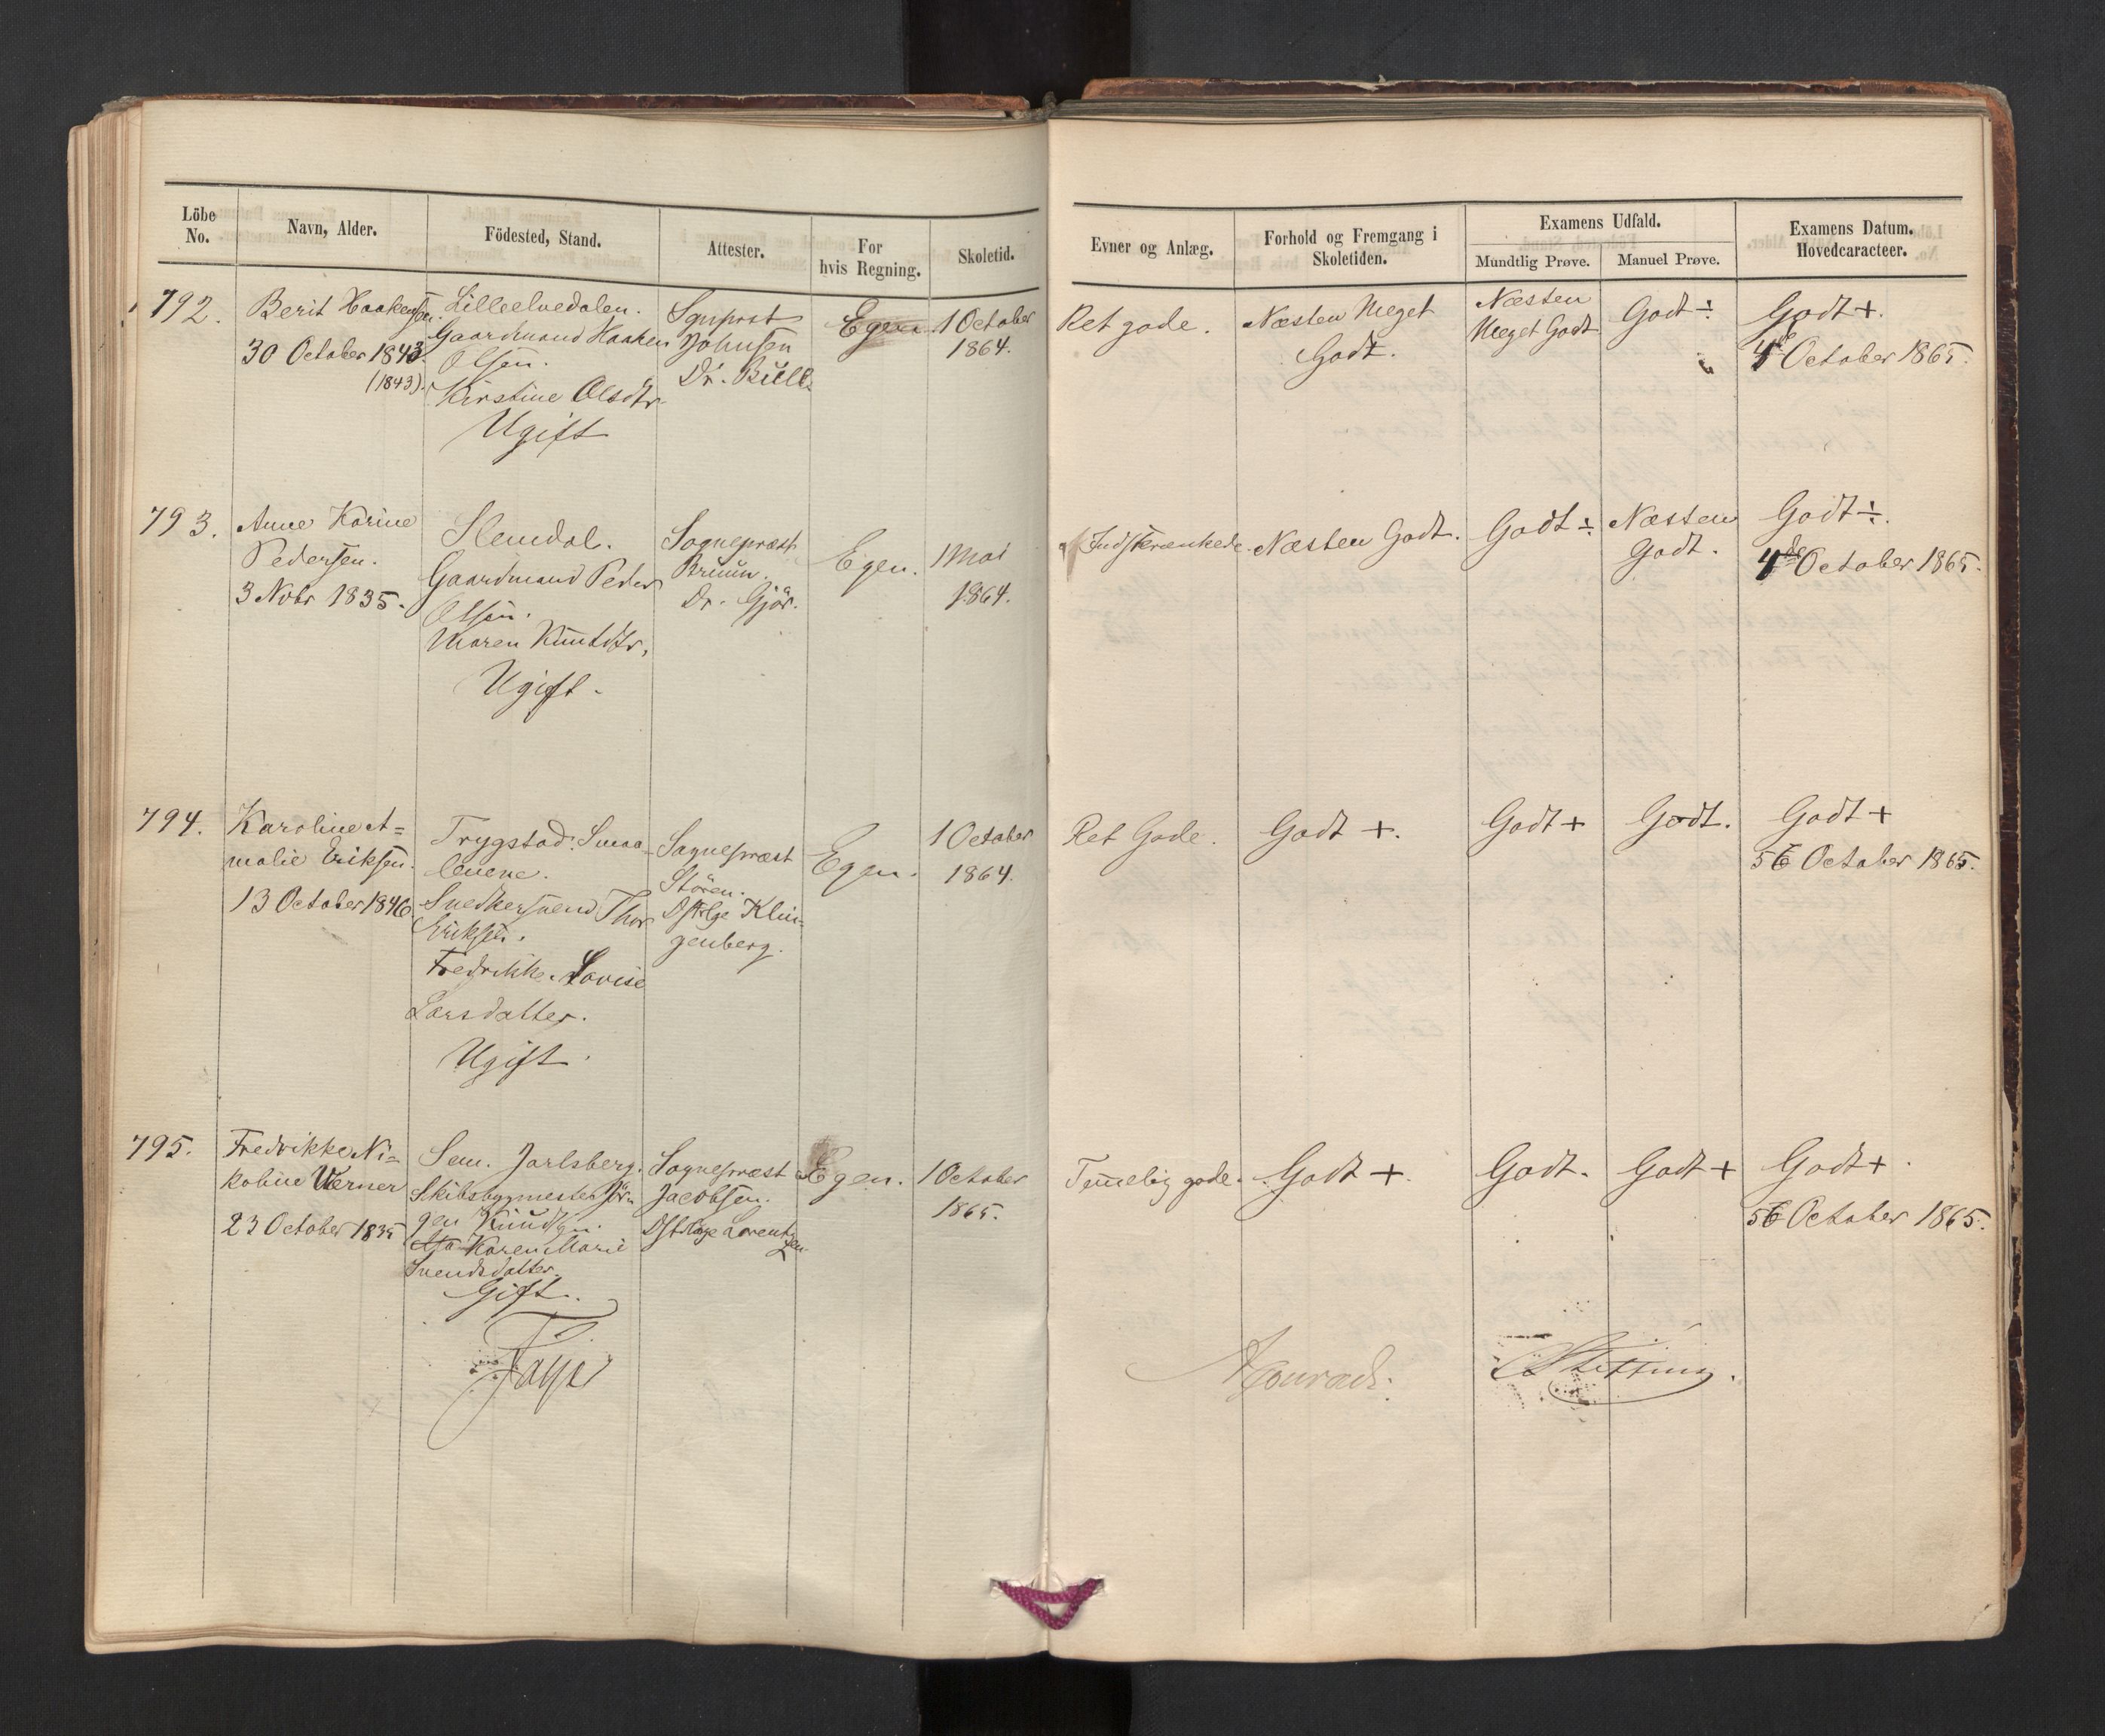 Löbe No.
Navn, Alder.
Födested, Stand.
Attester.
For hvis Regning.
Skoletid.
792.
Berit Haakensen.
30 October 1843.
(1843).
Lilleelvedalen.
Gaardmand Haaken
Olsen.
Kirstine Olsdtr
Ugift
Sgnprst
Johnsen
Dr. Bull.
Egen.
1 October
1864.
793.
Anne Karine
Pedersen.
3 Novbr 1835.
Slemdal.
Gaardmand Peder
Olsen.
Maren Knutdtr,
Ugift.
Sognepræst
Bruun.
Dr. Gjör.
Egen.
1 Mai
1864.
794.
Karoline A=
malie Eriksen.
13 October 1846
Trygstad. Smaa-
lenene.
Snedkersvend Thor
Eriksen.
Fredrikke Lovise
Larsdatter.
Ugift.
Sognepræst
Stören.
Dstrlge Klin-
genberg.
Egen.
1 October
1864.
795.
Fredrikke Ni=
koline Werner
23 October 1835
Sem. Jarlsberg.
Skibsbygmester Jör-
gen Knudsen.
Karen Marie
Svendsdatter.
Gift.
Sognepræst
Jacobsen.
Dstrlge Lorentzen.
Egen.
1 October
1865.
Faye
Evner og Anlæg.
Forhold og Fremgang i Skoletiden.
Examens Udfald.
Mundtlig Prøve.
Manuel Prøve.
Examens Datum.
Hovedcaracteer.
Ret gode.
Næsten Meget
Godt.
Næsten
Meget Godt
Godt ÷
Godt +.
4de October 1865.
Indskrænkede.
Næsten Godt.
Godt ÷
Næsten
Godt.
Godt ÷.
4de October 1865.
Ret Gode.
Godt +.
Godt +
Godt.
Godt +
5te October 1865.
Temelig gode.
Godt +.
Godt.
Godt +
Godt +.
5te October 1865.
Conradi.